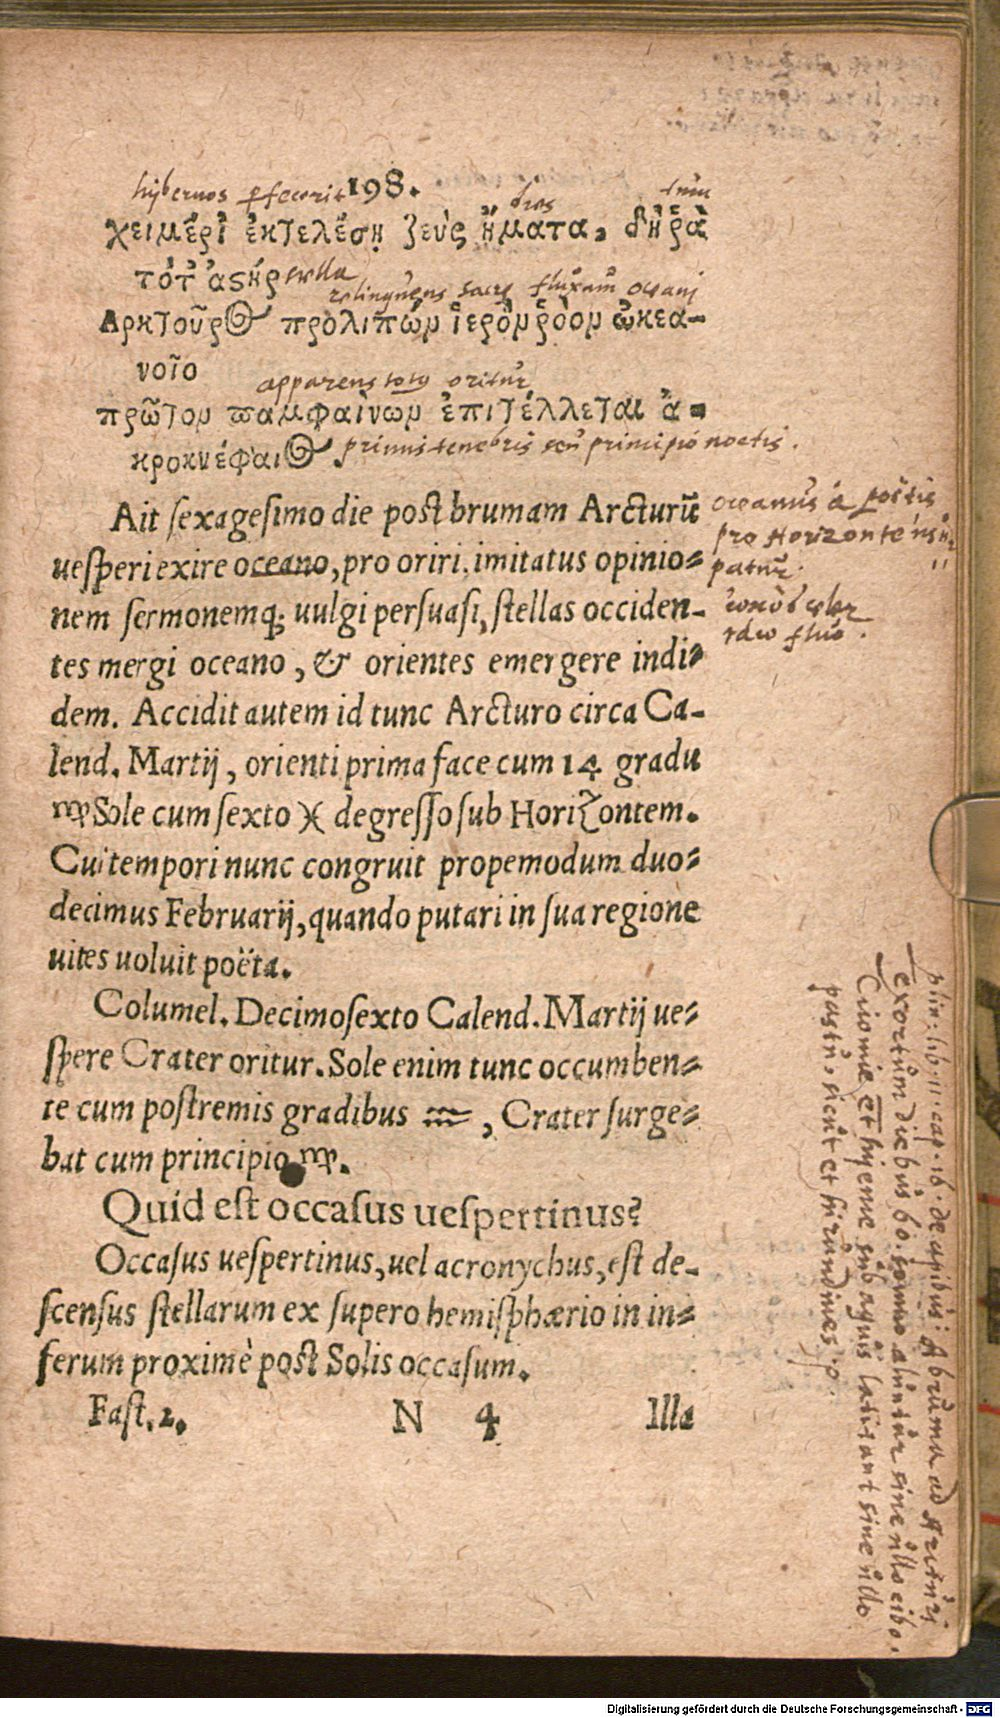 hybernos pfecerit 198. dies tum
χειμέρι᾽ ἐκτελέσῃ ζεὺς ἤματα, δή ῥα
τότ᾽ ἀστήρ stella
relinquens sacrū fluxum oceani
Αρκτοῦρος προλιπὼν ἱερὸν ῥόον ὠκεα-
νοῖο
apparens totus oritur
πρῶτον παμφαίνων ἐπιτέλλεται ἀ-
κροκνέφαιος primis tenebris seu principio noctis.
Ait sexagesimo die post brumam Arcturū
uesperi exire oceano, pro oriri. imitatus opinio-
nem sermonemq; uulgi persuasi, stellas occiden-
tes mergi oceano, & orientes emergere indi-
dem. Accidit autem id tunc Arcturo circa Ca-
lend. Martij, orienti prima face cum 14 gradu
♍ Sole cum sexto ♓ degresso sub Horizontem.
Cui tempori nunc congruit propemodum duo-
decimus Februarij, quando putari in sua regione
uites uoluit poëta.
Columel. Decimosexto Calend. Martij ue-
spere Crater oritur. Sole enim tunc occumben-
te cum postremis gradibus ♒, Crater surge-
bat cum principio ♍.
Quid est occasus uespertinus?
Occasus uespertinus, uel acronychus, est de-
scensus stellarum ex supero hemisphærio in in-
ferum proximè post Solis occasum.
Fast. 2. N 4 Illa
oceanus a poëtis
pro Horizonte usur
patur.
fluo.
plin: lib. 11. cap. 16. de apibus: A bruma ad Arcturi
exortum diebus 60. somno aluntur sine ullo cibo.
et hyeme sub aquis latitant sine ullo
pastu, sicut et hirundines.
Digitalisierung gefördert durch die Deutsche Forschungsgemeinschaft - DFG